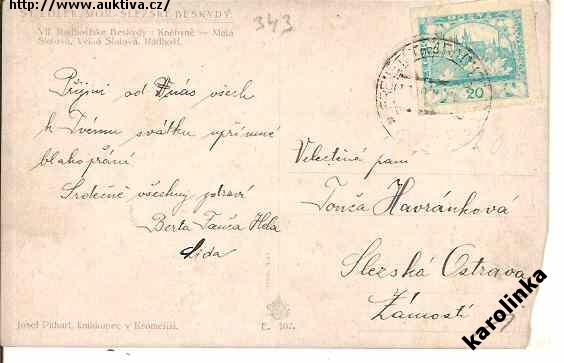 http://www.auktiva.cz/
ST. EOLEK. MOR.-SLEZSKÉ BESKYDY.
VII. Radhošťské Beskydy: Kněhyně — Malá
Stolová, Velká Stolová, Radhošť.
343
20
Přijmi od nás všech
k Tvému svátku upřímné
blahopřání
Srdečně všechny zdraví
Berta Tonča Hela
Lida
Velectěná paní
Tonča Havránková
Slezská Ostrava
Zámostí
Josef Pithart, knihkupec v Kroměříži.
E. 107.
karolinka